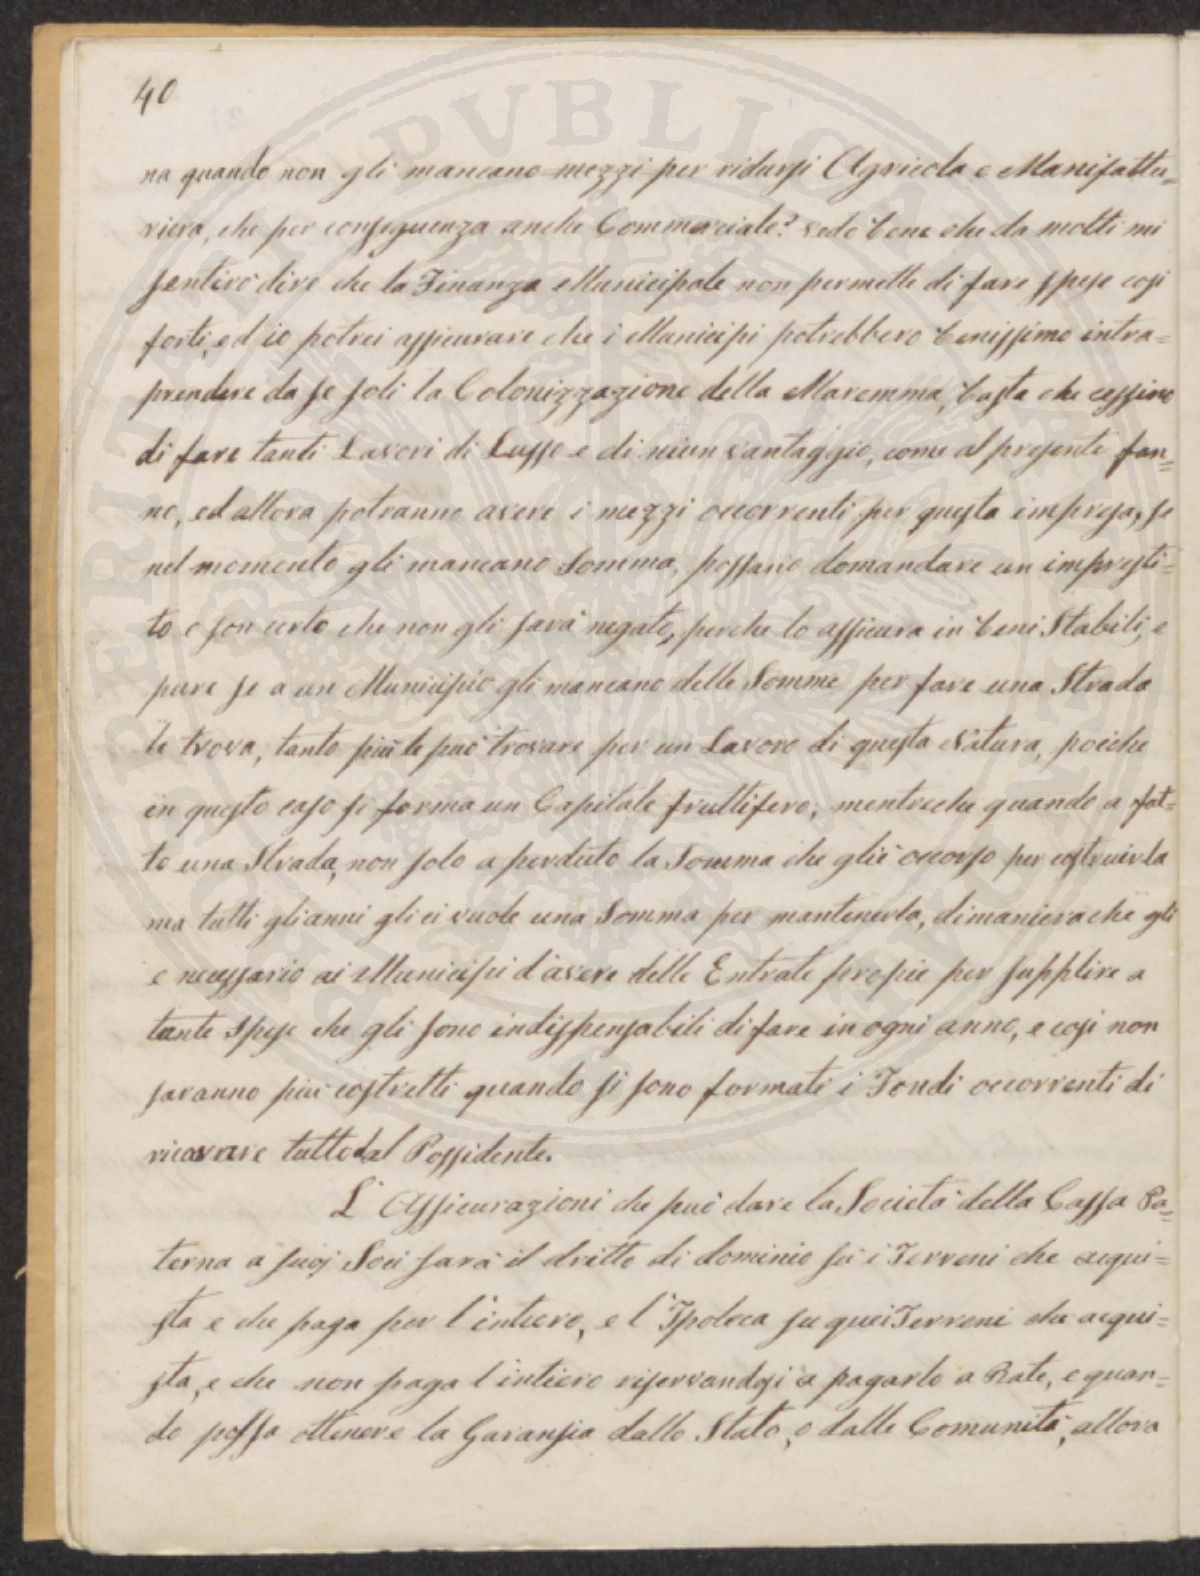 40
na quando non gli mancano mezzi per ridursi Agricola e Manifattu=
riera, che per conseguenza anche Commerciale? vedo bene che da molti mi
sentirò dire che la Finanza Municipale non permette di fare spese così
forti, ed io potrei assicurare che i Municipi potrebbero benissimo intra=
prendere da se soli la Colonizzazione della Maremma, basta che cessino
di fare tanti Lavori di Lusso e di niun vantaggio, come al presente fan=
no, ed allora potranno avere i mezzi occorrenti per questa impresa, se
nel momento gli mancano Somma, possano domandare un impresti=
to e son certo che non gli sarà negato, perche lo assicura in beni Stabili, e
pure se a un Municipio gli mancano delle Somme per fare una Strada
le trova, tanto più le può trovare per un Lavoro di questa Natura, poiche
in questo caso si forma un Capitale fruttifero, mentreche quando a fat=
to una Strada, non solo a perduto la Somma che gliè occorso per costruirla
ma tutti gli anni gli ci vuole una Somma per mantenerla, dimanierache gli
e necessario ai Municipi d'avere delle Entrate propie per supplire a
tante Spese che gli sono indispensabili di fare in ogni anno, e cosi non
saranno più costretti quando si sono formati i Fondi occorrenti di
ricavare tutto dal Possidente.
L'Assicurazioni che può dare la Società della Cassa Pa=
terna a suoj Soci sarà il dritto di dominio sù i Terreni che acqui=
sta e che paga per l'intiero, e l'Ipoteca su quei Terreni che acqui=
sta, e che non paga l'intiero riservandosi a pagarlo a Rate, e quan=
do possa ottenere la Garansia dallo Stato, o dalle Comunità, allora
PVBLICA